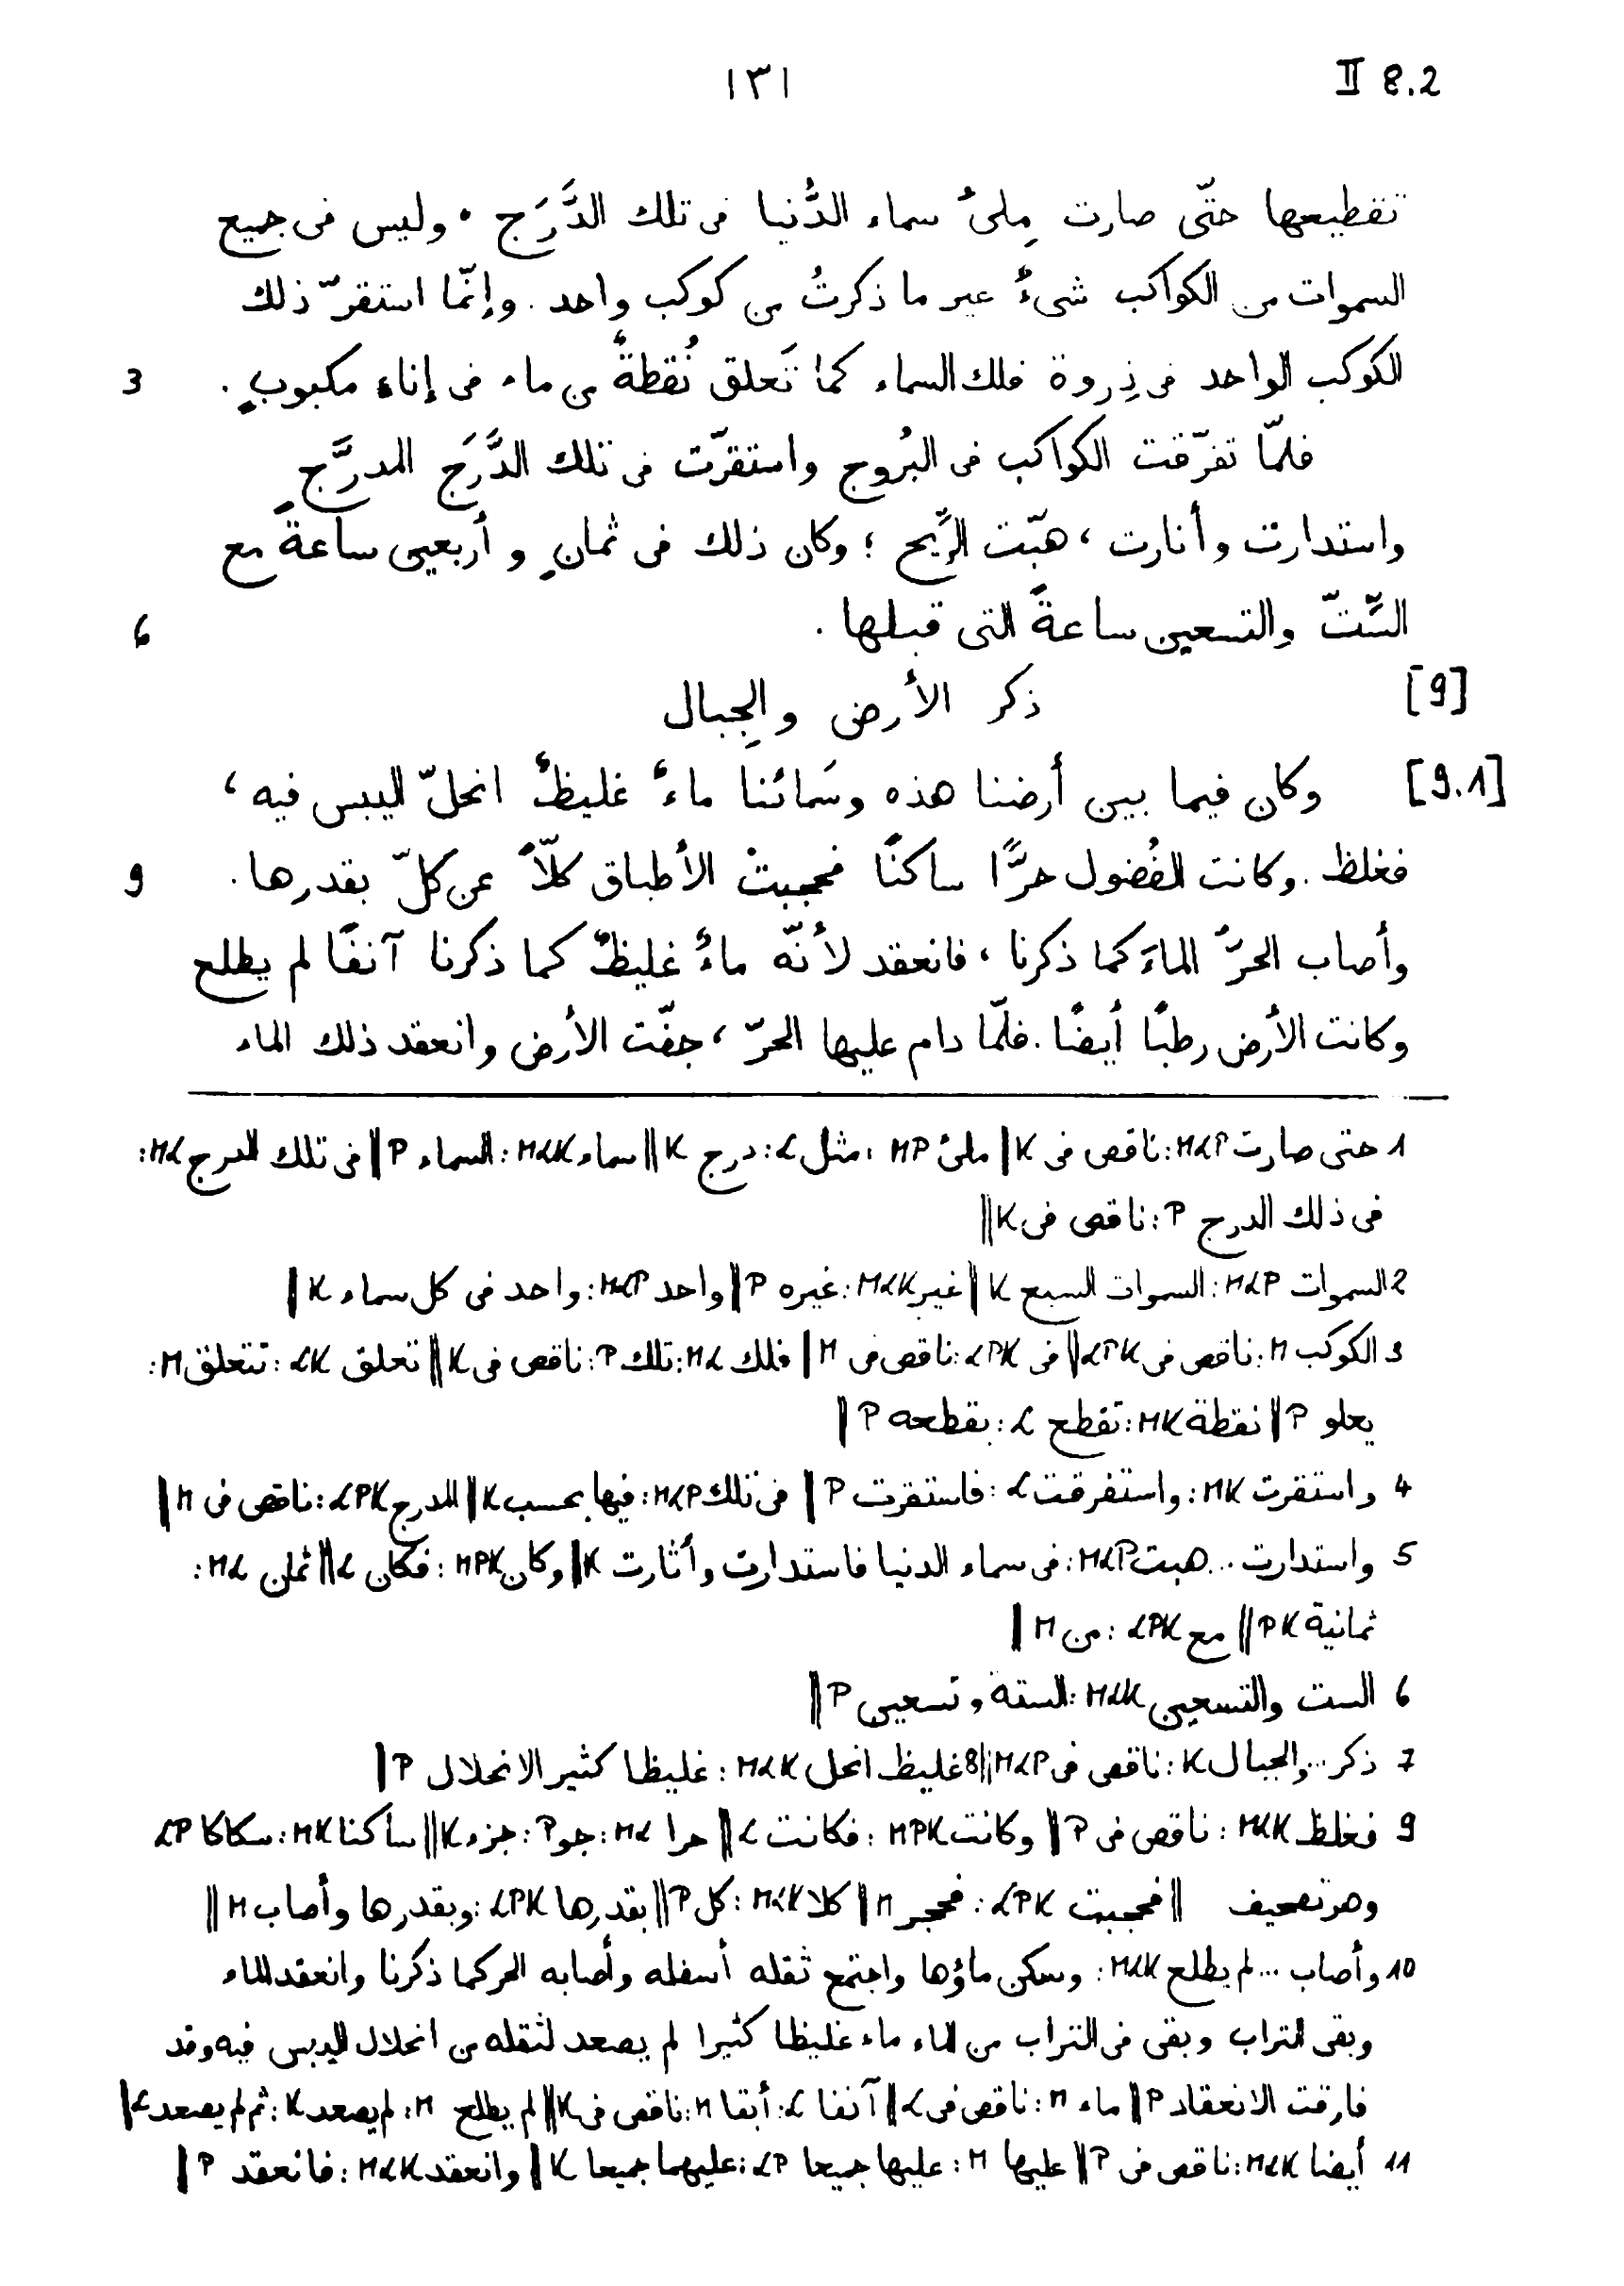 ١٣١ II 8.2
تقطيعها حتّى صارت مِلىءُ سماء الدُّنيا فى تلك الدَّرَج . وليس فى جميع
السموات من الكواكب شىءٌ غير ما ذكرتُ من كوكب واحد . وإنّما استقرّ ذلك
الكوكب الواحد فى ذِروة فلك السماء كما تَعلق نُقطةٌ من ماء فى إناءٍ مكبوبٍ . 3
فلمّا تفرّقت الكواكب فى البُروج واستقرّت فى تلك الدَّرَج المدرَّجِ
واستدارت وأنارت ، هبّت الرِّيح ؛ وكان ذلك فى ثمانٍ وأربعين ساعةً مع
السِّتّ والتسعين ساعةً التى قبلها . 6
[9] ذكر الأرض والجِبال
[9.1] وكان فيما بين أرضنا هذه وسَمائنا ماءٌ غليظٌ انحلّ اليبس فيه ،
فغلظ . وكانت الفُضول حرًّا ساكنًا فحجبتْ الأطباق كلّاً عن كلّ بقدرها . 9
وأصاب الحرُّ الماءَ كما ذكرنا ، فانعقد لأنّه ماءٌ غليظٌ كما ذكرنا آنفًا لم يطلع
وكانت الأرض رطبًا أيضًا . فلمّا دام عليها الحرّ ، جفّت الأرض وانعقد ذلك الماء
1 حتى صارت MLP : ناقص فى K ‖ ملئ MP : مثل L : درج K ‖ سماء MLK : السماء P ‖ فى تلك الدرج ML :
فى ذلك الدرج P : ناقص فى K ‖
2 السموات MLP : السموات السبع K ‖ غير MLK : غيره P ‖ واحد MLP : واحد فى كل سماء K ‖
3 الكوكب M : ناقص فى LPK ‖ فى LPK : ناقص فى M ‖ فلك ML : تلك P : ناقص فى K ‖ تعلق LK : تتعلق M :
يعلو P ‖ نقطة MK : تقطع L : بقطعه P ‖
4 واستقرت MK : واستفرقت L : فاستقرت P ‖ فى تلك MLP : فيها بحسب K ‖ المدرج LPK : ناقص فى M ‖
5 واستدارت ... هبت MLP : فى سماء الدنيا فاستدارت وأثارت K ‖ وكان MPK : فكان L ‖ ثمان ML :
ثمانية PK ‖ مع LPK : من M ‖
6 الست والتسعين MLK : الستة وتسعين P ‖
7 ذكر ... والجبال K : ناقص فى MLP ‖ 8 غليظ انحل MLK : غليظا كثير الانحلال P ‖
9 فغلظ MLK : ناقص فى P ‖ وكانت MPK : فكانت L ‖ حرا ML : جو P : جزء K ‖ ساكنا MK : سكاكا LP
وهو تصحيف ‖ فحجبت LPK : فحجر M ‖ كلا MLK : كل P ‖ بقدرها LPK : وبقدرها وأصاب M ‖
10 وأصاب ... لم يطلع MLK : وسكن ماؤها واجتمع ثقله أسفله وأصابه الحر كما ذكرنا وانعقد الماء
وبقى التراب وبقى فى التراب من الماء ماء غليظا كثيرا لم يصعد لثقله من انحلال اليبس فيه وقد
فارقت الانعقاد P ‖ ماء M : ناقص فى L ‖ آنفا L : أبقا M : ناقص فى K ‖ لم يطلع M : لم يصعد K : ثم لم يصعد L ‖
11 أيضا MLK : ناقص فى P ‖ عليها M : عليها جميعا LP : عليهما جميعا K ‖ وانعقد MLK : فانعقد P ‖